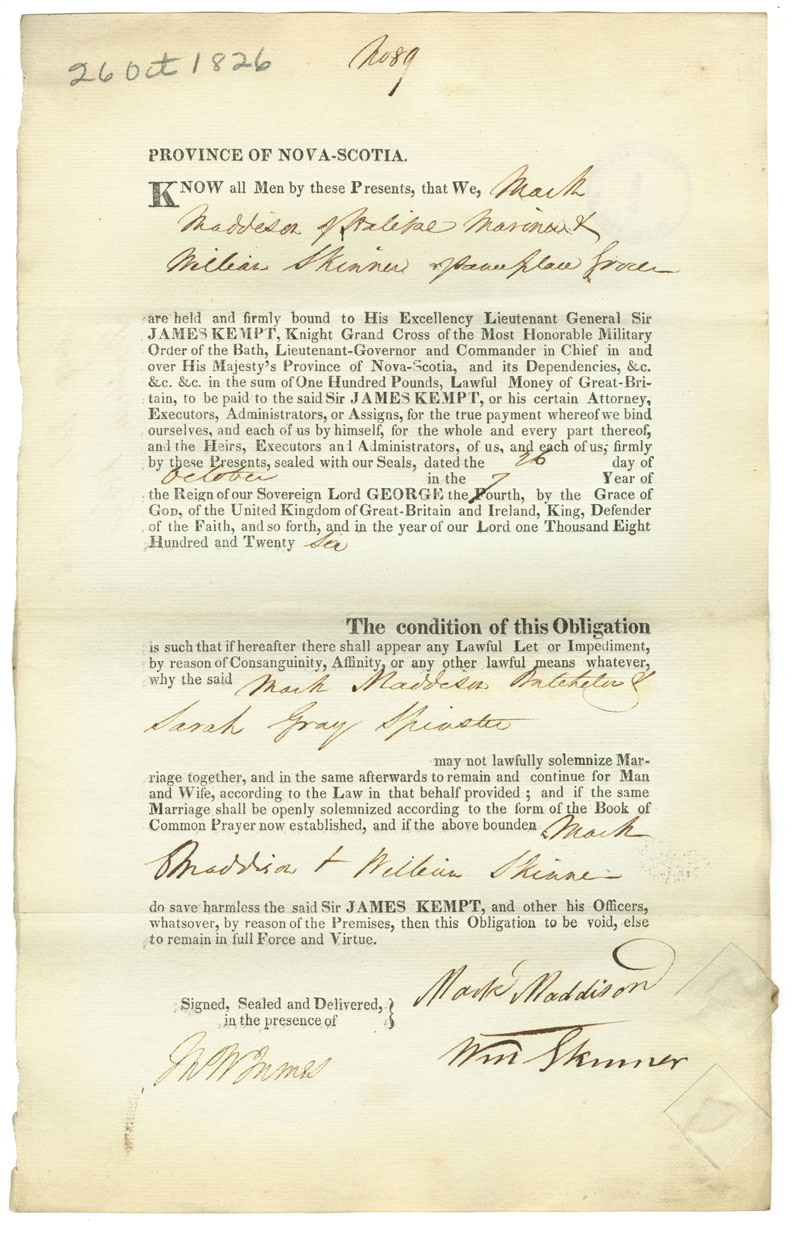 26 Oct 1826
No 89
PROVINCE OF NOVA-SCOTIA.
KNOW all Men by these Presents, that We, Mark
Maddison of Halifax Mariner &
William Skinner of same place Grocer
are held and firmly bound to His Excellency Lieutenant General Sir
JAMES KEMPT, Knight Grand Cross of the Most Honorable Military
Order of the Bath, Lieutenant-Governor and Commander in Chief in and
over His Majesty's Province of Nova-Scotia, and its Dependencies, &c.
&c. &c. in the sum of One Hundred Pounds, Lawful Money of Great-Bri-
tain, to be paid to the said Sir JAMES KEMPT, or his certain Attorney,
Executors, Administrators, or Assigns, for the true payment whereof we bind
ourselves, and each of us by himself, for the whole and every part thereof,
and the Heirs, Executors and Administrators, of us, and each of us, firmly
by these Presents, sealed with our Seals, dated the 26 day of
October in the 7 Year of
the Reign of our Sovereign Lord GEORGE the Fourth, by the Grace of
GOD, of the United Kingdom of Great-Britain and Ireland, King, Defender
of the Faith, and so forth, and in the year of our Lord one Thousand Eight
Hundred and Twenty Six
The condition of this Obligation
is such that if hereafter there shall appear any Lawful Let or Impediment,
by reason of Consanguinity, Affinity, or any other lawful means whatever,
why the said Mark Maddison Batchelor &
Sarah Gray Spinster
may not lawfully solemnize Mar-
riage together, and in the same afterwards to remain and continue for Man
and Wife, according to the Law in that behalf provided ; and if the same
Marriage shall be openly solemnized according to the form of the Book of
Common Prayer now established, and if the above bounden Mark
Maddison & William Skinner
do save harmless the said Sir JAMES KEMPT, and other his Officers,
whatsover, by reason of the Premises, then this Obligation to be void, else
to remain in full Force and Virtue.
Signed, Sealed and Delivered,
in the presence of
Mark Maddison
Wm Skinner